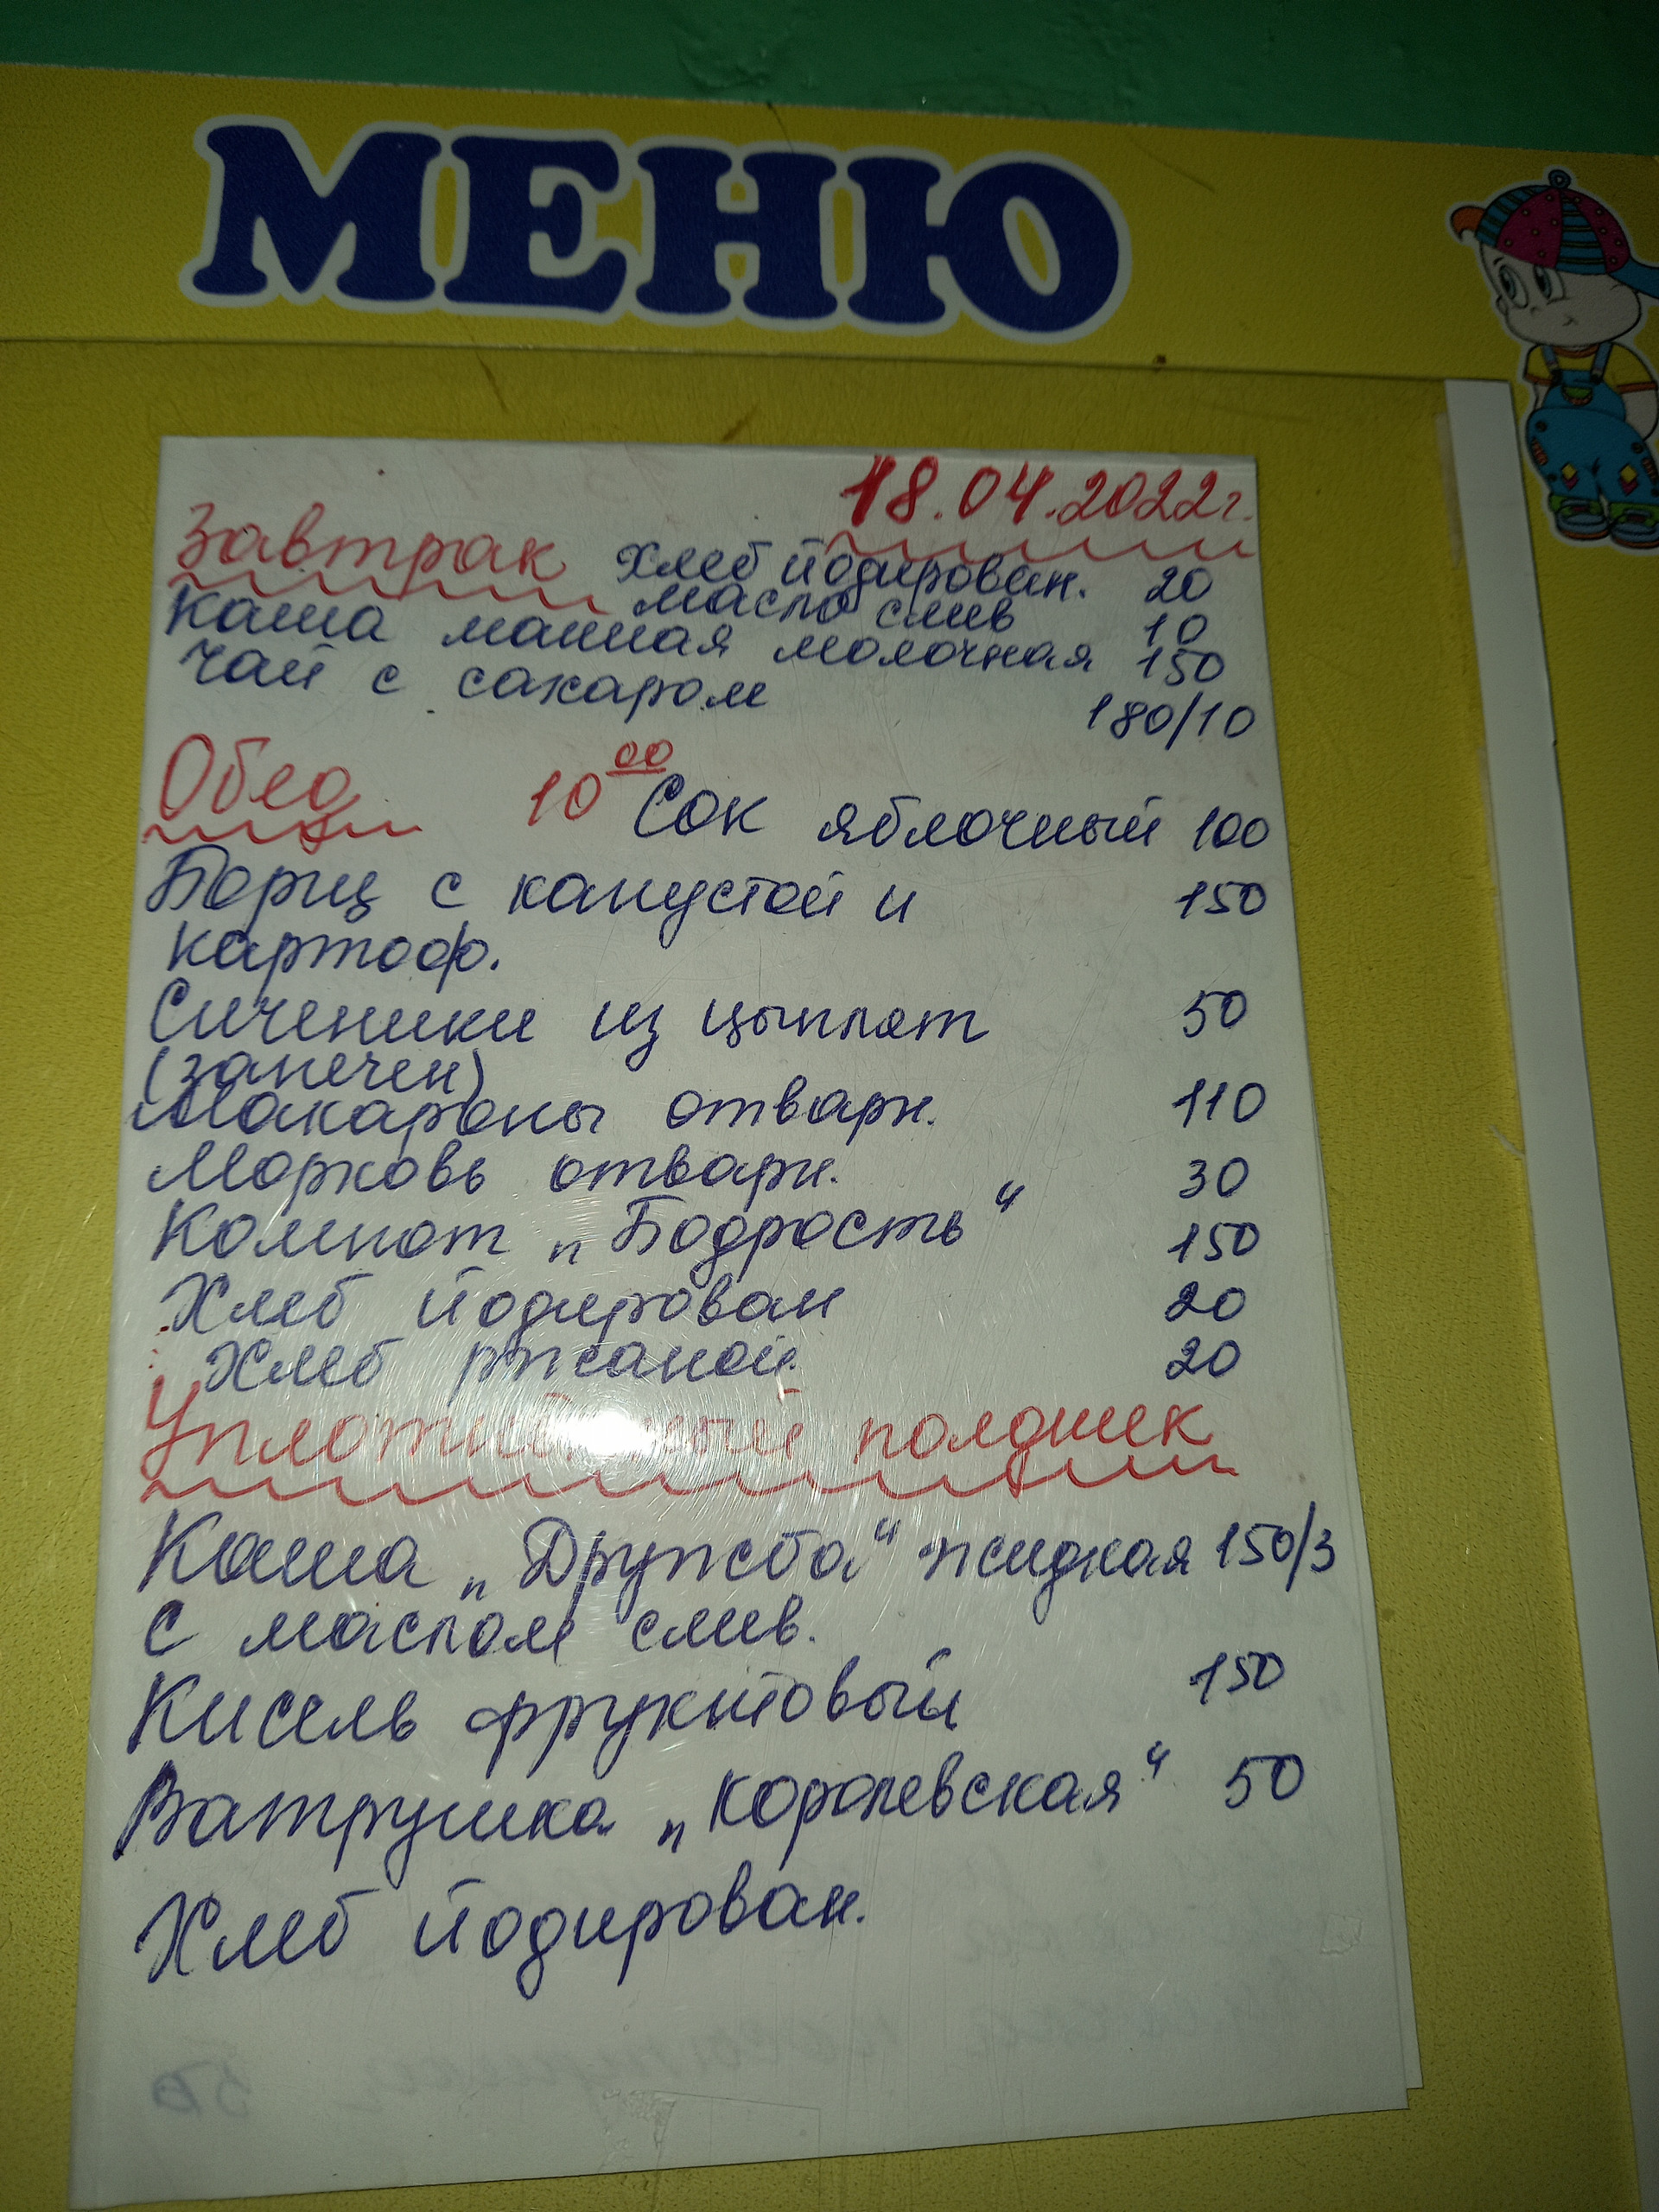 МЕНЮ
18.04.2022г.
Завтрак Хлеб йодирован. 20
масло слив 10
Каша манная молочная 150
Чай с сахаром 180/10
Обед 10 00 Сок яблочный 100
Борщ с капустой и 150
картоф.
Сиченики из цыплят 50
(запечен)
Макароны отварн. 110
Морковь отварн. 30
Компот „Бодрость“ 150
Хлеб йодирован 20
Хлеб ржаной 20
полдник
Каша „Дружба“ жидкая 150/3
с маслом слив.
Кисель фруктовый 150
Ватрушка „Королевская“ 50
Хлеб йодирован.